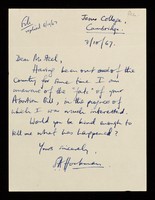 Jesus College,
Cambridge.
2/10/67.
Dear Mr Steel,
Having been out of the
country for some time I am
unaware of the "fate" of your
Abortion Bill, in the progress of
which I was much interested.
Would you be kind enough to
tell me what has happened?
Yours sincerely,